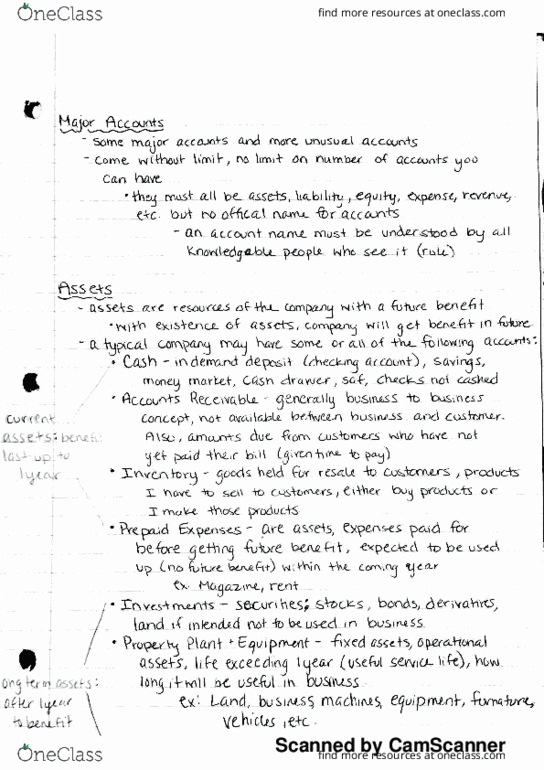 OneClass
find more resources at oneclass.com
Major Accounts
- some major accounts and more unusual accounts
- come without limit, no limit on number of accounts you
can have
• they must all be assets, liability, equity, expense, revenue,
etc. but no offical name for accounts
- an account name must be understood by all
knowledgable people who see it (rule)
Assets
- assets are resources of the company with a future benefit
• with existence of assets, company will get benefit in future
- a typical company may have some or all of the following accounts:
• Cash - in demand deposit (checking account), savings,
money market, cash drawer, saf, checks not cashed
• Accounts Receivable - generally business to business
concept, not available between business and customer.
Also, amounts due from customers who have not
yet paid their bill (given time to pay)
current
assets: benefit
last up to
1 year
• Inventory - goods held for resale to customers, products
I have to sell to customers, either buy products or
I make those products
• Prepaid Expenses - are assets, expenses paid for
before getting future benefit, expected to be used
up (no future benefit) within the coming year
ex Magazine, rent
• Investments - securities; stocks, bonds, derivatives,
land if intended not to be used in business
• Property Plant + Equipment - fixed assets, operational
assets, life exceeding 1 year (useful service life), how
long it will be useful in business
ong term assets:
after 1 year
to benefit
ex: Land, business, machines, equipment, furnature,
vehicles, etc.
Scanned by CamScanner
OneClass
find more resources at oneclass.com